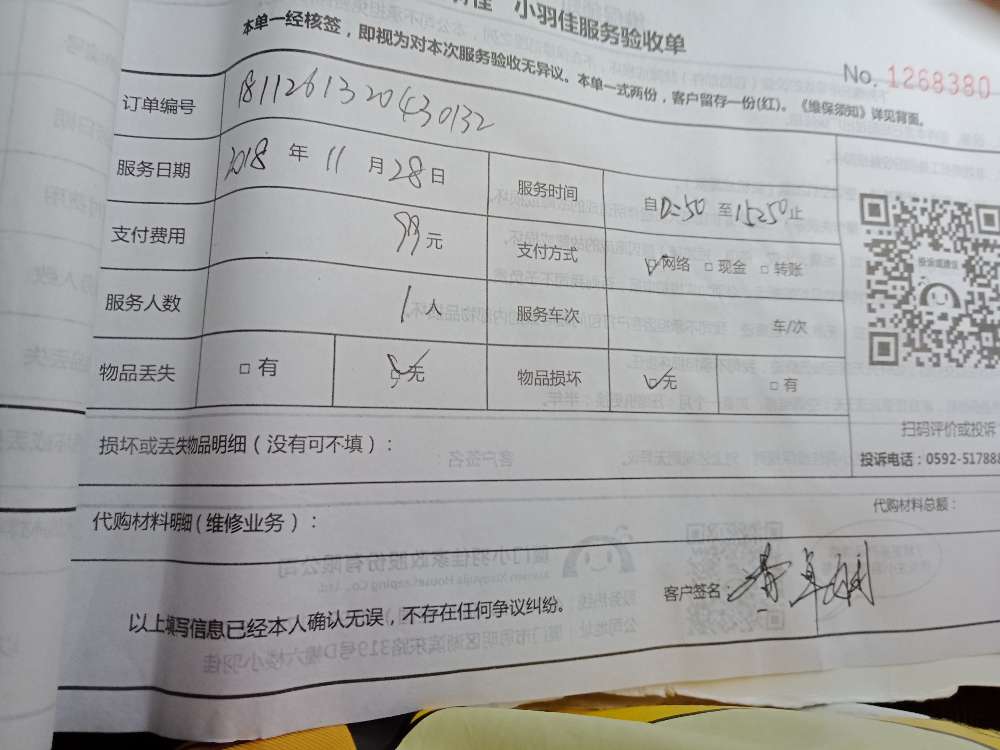 小羽佳服务验收单
本单一经核签，即视为对本次服务验收无异议。本单一式两份，客户留存一份(红)。《维保须知》详见背面。
No. 1268380
订单编号 181126132043 0132
服务日期 2018 年 11 月 28 日 服务时间 自 12:50 至 15:50 止
支付费用 99 元 支付方式 网络 □ 现金 □ 转账
服务人数 1 人 服务车次 车/次
物品丢失 □ 有 无 物品损坏 无 □ 有
扫码评价或投诉
投诉电话：0592-517888
损坏或丢失物品明细（没有可不填）：
代购材料明细（维修业务）： 代购材料总额：
客户签名：
以上填写信息已经本人确认无误，不存在任何争议纠纷。